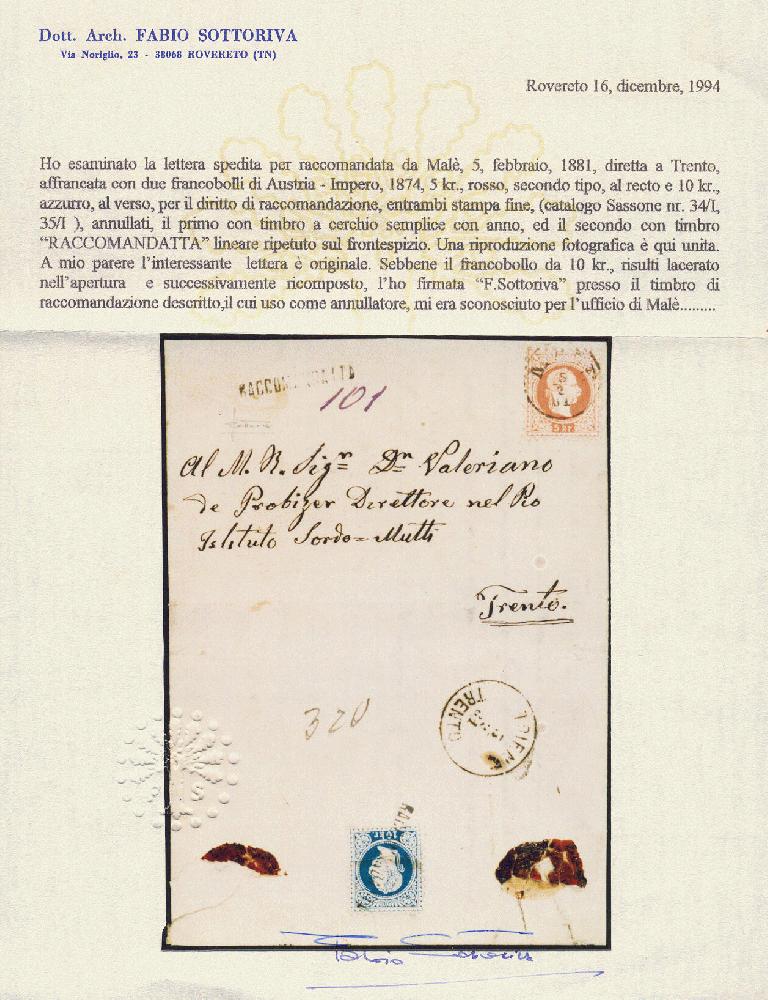 Dott. Arch. FABIO SOTTORIVA
Via Noriglio, 23 - 38068 ROVERETO (TN)
Rovereto 16, dicembre, 1994
Ho esaminato la lettera spedita per raccomandata da Malè, 5, febbraio, 1881, diretta a Trento,
affrancata con due francobolli di Austria - Impero, 1874, 5 kr., rosso, secondo tipo, al recto e 10 kr.,
azzurro, al verso, per il diritto di raccomandazione, entrambi stampa fine, (catalogo Sassone nr. 34/I,
35/I ), annullati, il primo con timbro a cerchio semplice con anno, ed il secondo con timbro
“RACCOMANDATTA” lineare ripetuto sul frontespizio. Una riproduzione fotografica è qui unita.
A mio parere l’interessante lettera è originale. Sebbene il francobollo da 10 kr., risulti lacerato
nell’apertura e successivamente ricomposto, l’ho firmata “F.Sottoriva” presso il timbro di
raccomandazione descritto,il cui uso come annullatore, mi era sconosciuto per l’ufficio di Malè.........
101
5
2
5 kr
Al M. R. Sigr Dn Valeriano
de Probizer Direttore nel Rio
Istituto Sordo=Mutti
Trento.
320
TRENTO
10 kr
Fabio Sottoriva